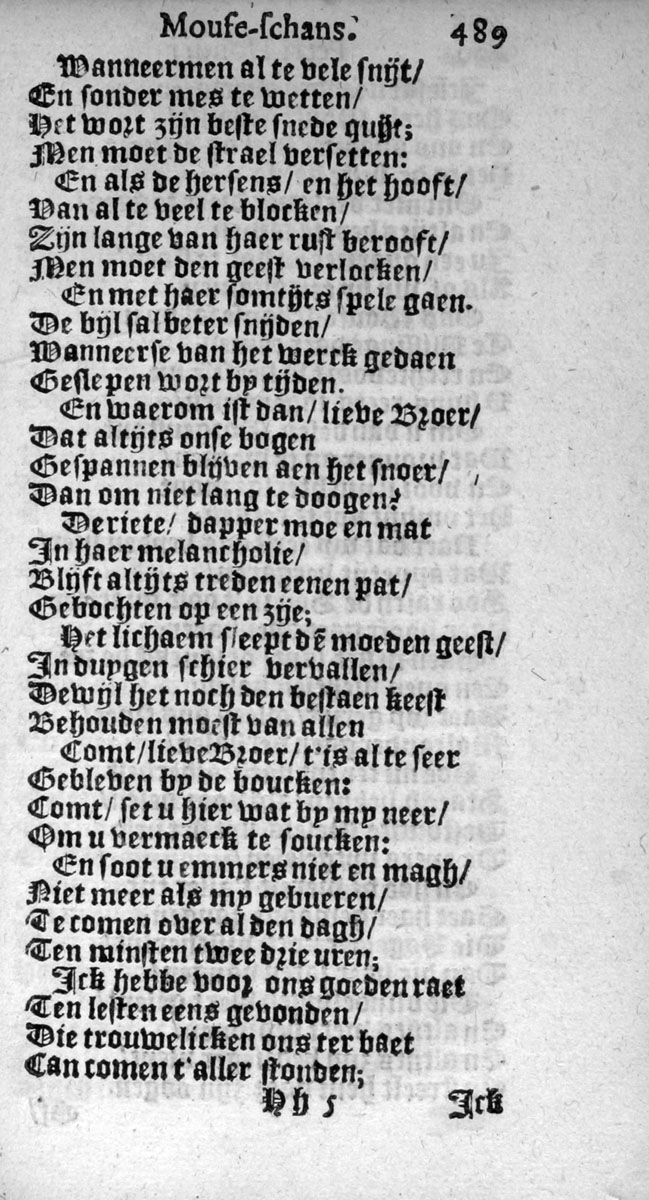 Mouse-schans. 489
Wanneermen al te vele snijt/
En sonder mes te wetten/
Het wort zijn beste snede quijt;
Men moet de strael versetten:
En als de hersens/ en het hooft/
Van al te veel te blocken/
Zijn lange van haer rust berooft/
Men moet den geest verlocken/
En met haer somtijts spele gaen.
De bijl sal beter snijden/
Wanneerse van het werck gedaen
Geslepen wort by tijden.
En waerom ist dan/ lieve Broer/
Dat altijts onse bogen
Gespannen blijven aen het snoer/
Dan om niet lang te doogen?
Deriete/ dapper moe en mat
In haer melancholie/
Blijft altijts treden eenen pat/
Gebochten op een zije;
Het lichaem sleept dē moeden geest/
In duygen schier vervallen/
Dewijl het noch den bestaen keest
Behouden moest van allen
Comt/lieve Broer/ t'is al te seer
Gebleven by de boucken:
Comt/ set u hier wat by my neer/
Om u vermaeck te soucken:
En soot u emmers niet en magh/
Niet meer als my gebueren/
Te comen over al den dagh/
Ten minsten twee drie uren;
Ick hebbe voor ons goeden raet
Ten lesten eens gevonden/
Die trouwelicken ons ter baet
Can comen t'aller stonden;
Hh 5 Ick